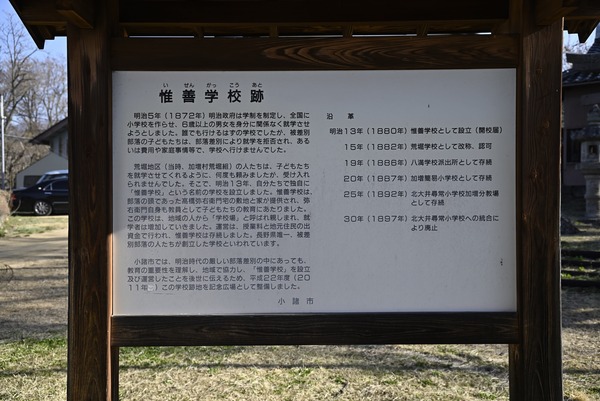 い ぜん がっ こう あと
惟善学校跡
明治5年（1872年）明治政府は学制を制定し、全国に
小学校を作らせ、6歳以上の男女を身分に関係なく就学させ
ようとしました。誰でも行けるはずの学校でしたが、被差別
部落の子どもたちは、部落差別により就学を拒否され、ある
いは費用や家庭事情等で、学校へ行けませんでした。
荒堀地区（当時、加増村荒堀組）の人たちは、子どもたち
を就学させてくれるように、何度も頼みましたが、受け入れ
られませんでした。そこで、明治13年、自分たちで独自に
「惟善学校」という名前の学校を設立しました。惟善学校は、
部落の頭であった高橋弥右衛門宅の敷地と家が提供され、弥
右衛門自身も教員として子どもたちの教育にあたりました。
この学校は、地域の人から「学校場」と呼ばれ親しまれ、就
学者は増加していきました。運営は、授業料と地元住民の出
資金で行われ、惟善学校は存続しました。長野県唯一、被差
別部落の人たちが創立した学校といわれています。
小諸市では、明治時代の厳しい部落差別の中にあっても、
教育の重要性を理解し、地域で協力し、「惟善学校」を設立
及び運営したことを後世に伝えるため、平成22年度（20
11年）この学校跡地を記念広場として整備しました。
小諸市
沿革
明治13年（1880年）惟善学校として設立（開校届）
15年（1882年）荒堀学校として改称、認可
19年（1886年）八満学校派出所として存続
20年（1887年）加増簡易小学校として存続
25年（1892年）北大井尋常小学校加増分教場
として存続
30年（1897年）北大井尋常小学校への統合に
より廃止